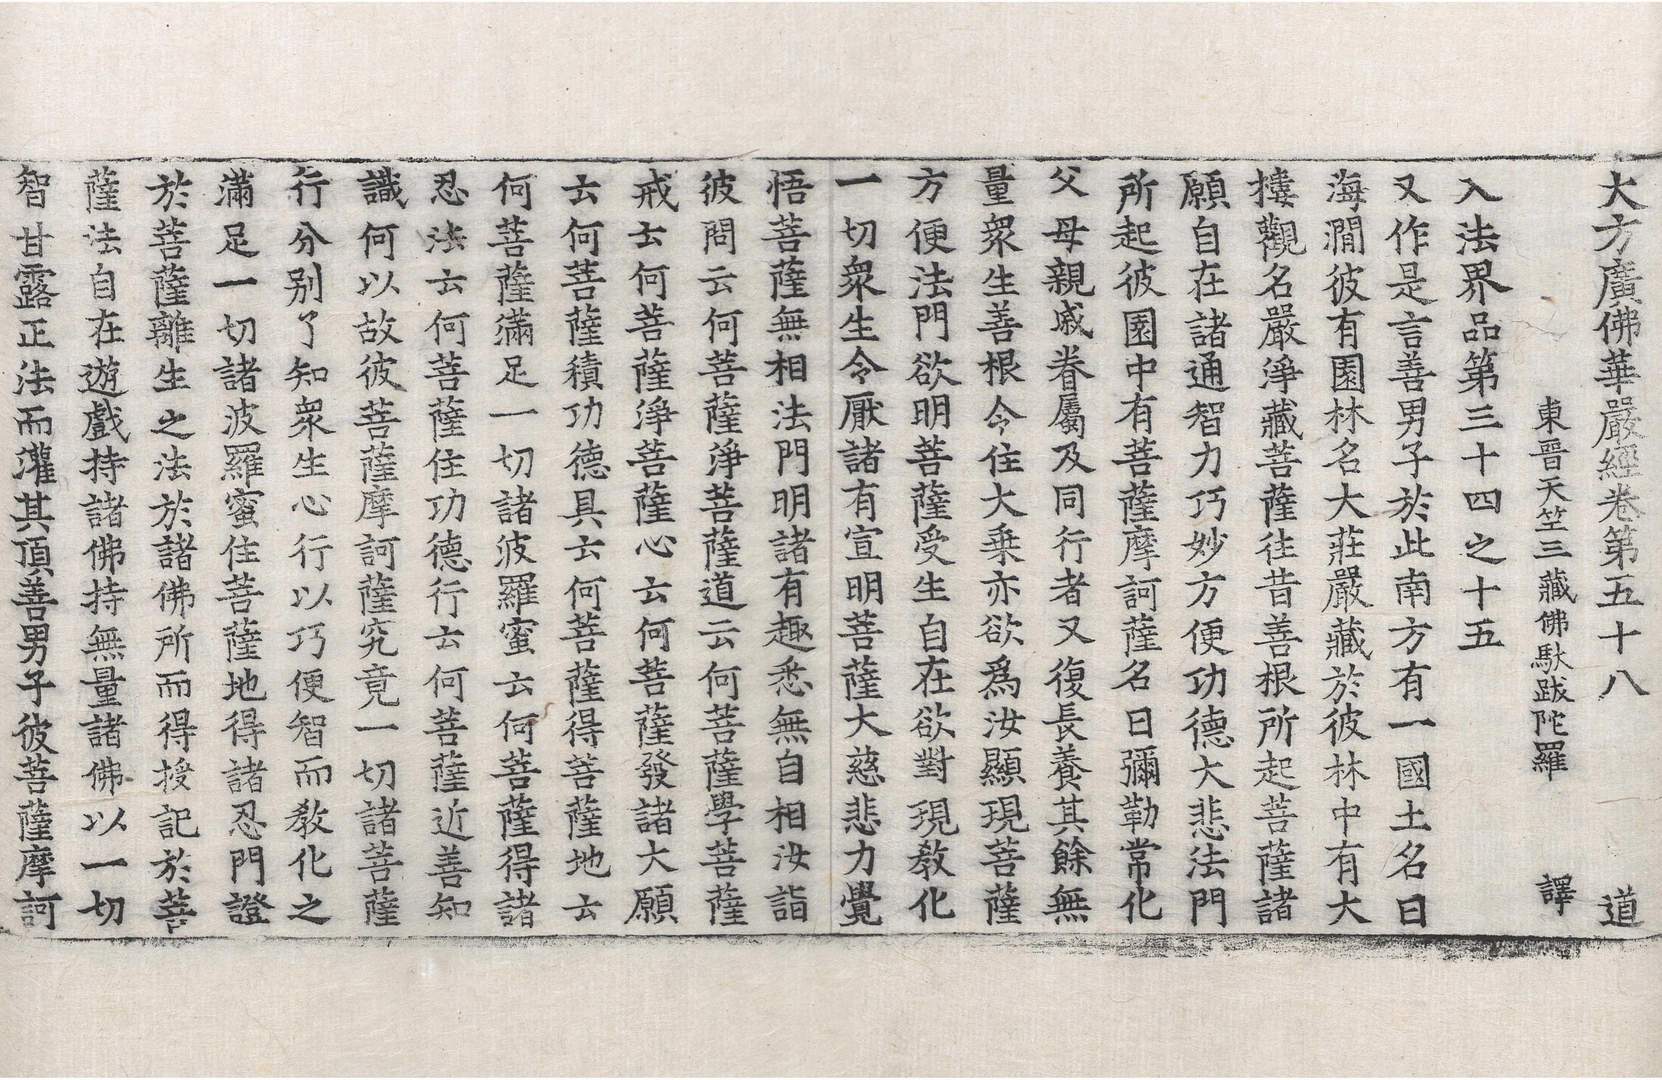 大方廣佛華嚴經卷第五十八 道
東晉天竺三藏佛馱跋陀羅 譯
入法界品第三十四之十五
又作是言善男子於此南方有一國土名曰
海澗彼有園林名大莊嚴藏於彼林中有大
樓觀名嚴淨藏菩薩往昔善根所起菩薩諸
願自在諸通智力巧妙方便功德大悲法門
所起彼園中有菩薩摩訶薩名曰彌勒常化
父母親戚眷屬及同行者又復長養其餘無
量衆生善根令住大乘亦欲爲汝顯現菩薩
方便法門欲明菩薩受生自在欲對現教化
一切衆生令厭諸有宣明菩薩大慈悲力覺
悟菩薩無相法門明諸有趣悉無自相汝詣
彼問云何菩薩淨菩薩道云何菩薩學菩薩
戒云何菩薩淨菩薩心云何菩薩發諸大願
云何菩薩積功德具云何菩薩得菩薩地云
何菩薩滿足一切諸波羅蜜云何菩薩得諸
忍法云何菩薩住功德行云何菩薩近善知
識何以故彼菩薩摩訶薩究竟一切諸菩薩
行分别了知衆生心行以巧便智而教化之
滿足一切諸波羅蜜住菩薩地得諸忍門證
於菩薩離生之法於諸佛所而得授記於菩
薩法自在遊戲持諸佛持無量諸佛以一切
智甘露正法而灌其頂善男子彼菩薩摩訶